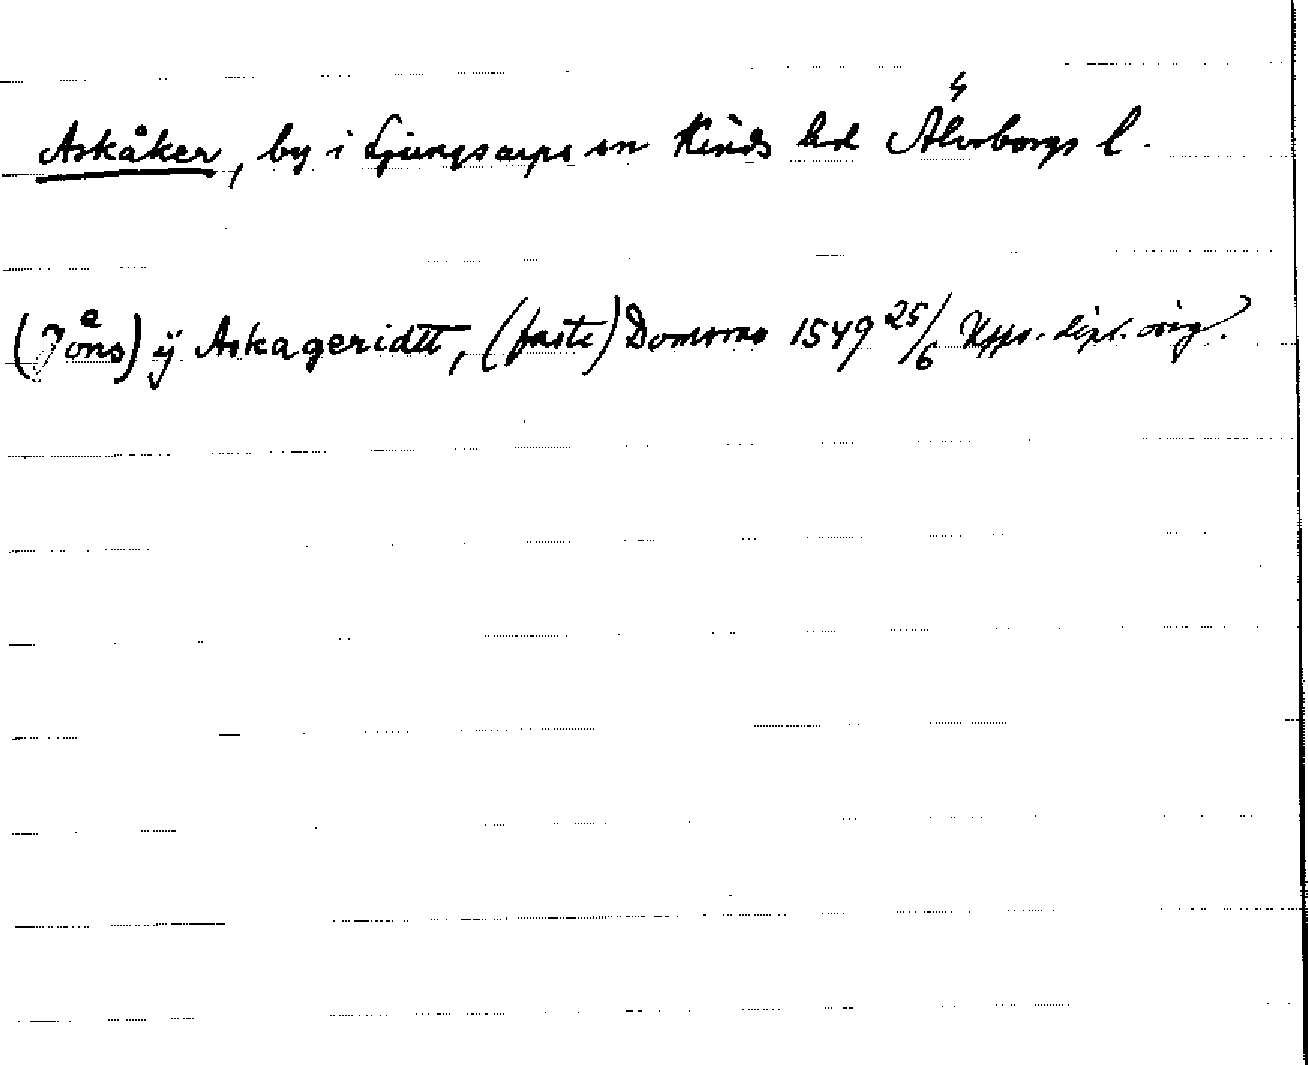 Askåker, by i Ljungsarps sn Kinds hd Älvsborgs l.
(Jöns) ÿ Askageridtt, (faste) Domomo 1549 25/6 Upps. dipl. orig.